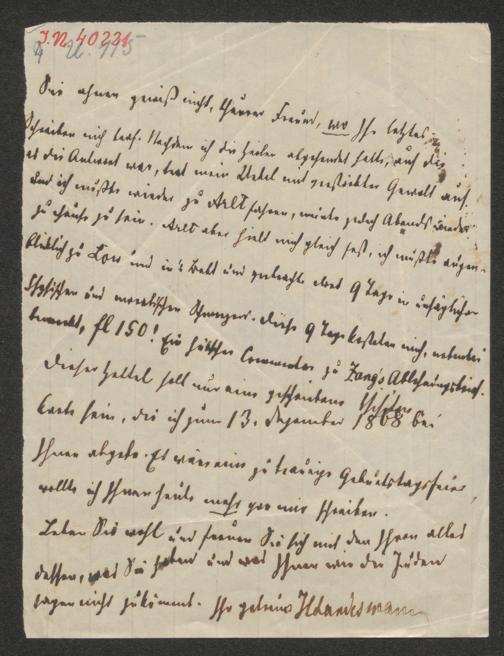 J.N. 40221
Sie ahnen gewiß nicht, theurer Freund, wo Ihr letztes
Schreiben mich traf. Nachdem ich die Zeilen abgesendet hatte, auf die
es die Antwort war, trat mein Uebel mit Gewalt auf.
und ich mußte wieder zu Arlt fahren, wollte jedoch Abends wieder
zu Hause zu sein. Arlt aber hielt mich gleich fest, ich mußte augen-
blicklich zu und in's Bett und verbrachte dort 9 Tage in unsäglichen
physischen und moralischen Schmerzen. Diese 9 Tage kosteten mich, nebenbei
bemerkt, fl 150! Ein hübscher Commentar zu Zang's Ablehnungsbrief.
Dieser Zettel soll nur eine geschriebene Visiten
Karte sein, die ich zum 13. Dezember 1868 bei
Ihnen abgebe. Es wäre eine zu traurige Geburtstagsfeier,
wollte ich Ihnen heute mehr von mir schreiben.
Leben Sie wohl und freuen Sie sich mit den Ihren alles
dessen, was Sie haben und was Ihnen wie die Juden
sagen nicht zukömmt. Ihr getreuer HLandesmann